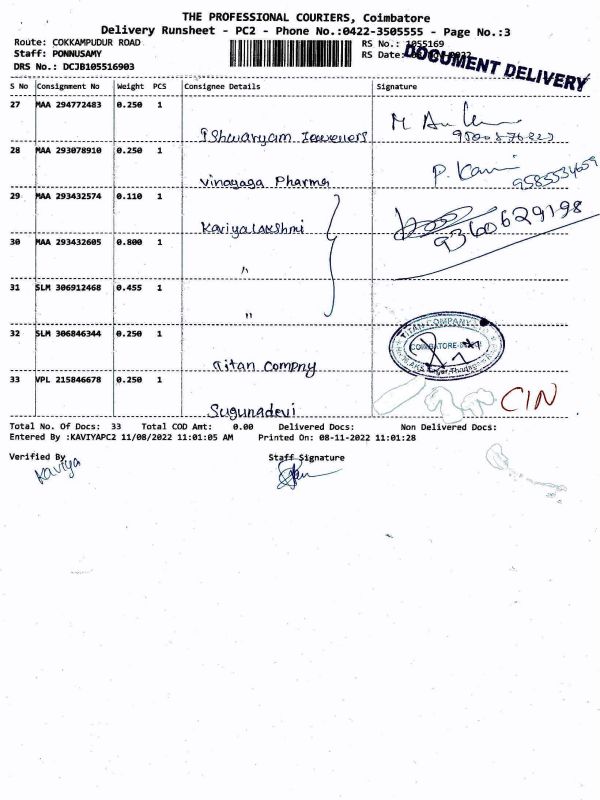 THE PROFESSIONAL COURIERS, Coimbatore
Delivery Runsheet - PC2 - Phone No.:0422-3505555 - Page No.:3
Route: COKKAMPUDUR ROAD
RS No.: 1055169
Staff: PONNUSAMY
RS Date:
DOCUMENT DELIVERY
DRS No.: DCJB105516903
S No Consignment No Weight PCS Consignee Details Signature
27 MAA 294772483 0.250 1
Ishwaryam Jewellers
28 MAA 293078910 0.250 1
P. Kavi
9585534659
Vinayaga Pharma
29 MAA 293432574 0.110 1
Kaviyalakshmi
9360629198
30 MAA 293432605 0.800 1
"
31 SLM 306912468 0.455 1
"
32 SLM 306846344 0.250 1
TITAN COMPANY
Titan Compny
33 VPL 215846678 0.250 1
CIN
Sugunadevi
Total No. Of Docs: 33 Total COD Amt: 0.00 Delivered Docs: Non Delivered Docs:
Entered By :KAVIYAPC2 11/08/2022 11:01:05 AM Printed On: 08-11-2022 11:01:28
Verified By Staff Signature
Kaviya